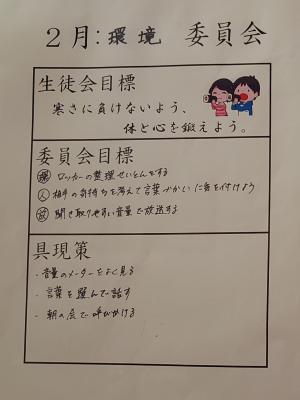 2月:環境 委員会
生徒会目標
寒さに負けないよう、
体と心を鍛えよう。
委員会目標
環 ロッカーの整理せいとんをする
人 相手の気持ちを考えて言葉づかいに気を付けよう
放 聞き取りやすい音量で放送する
具現策
・音量のメーターをよく見る
・言葉を選んで話す
・朝の会で呼びかける